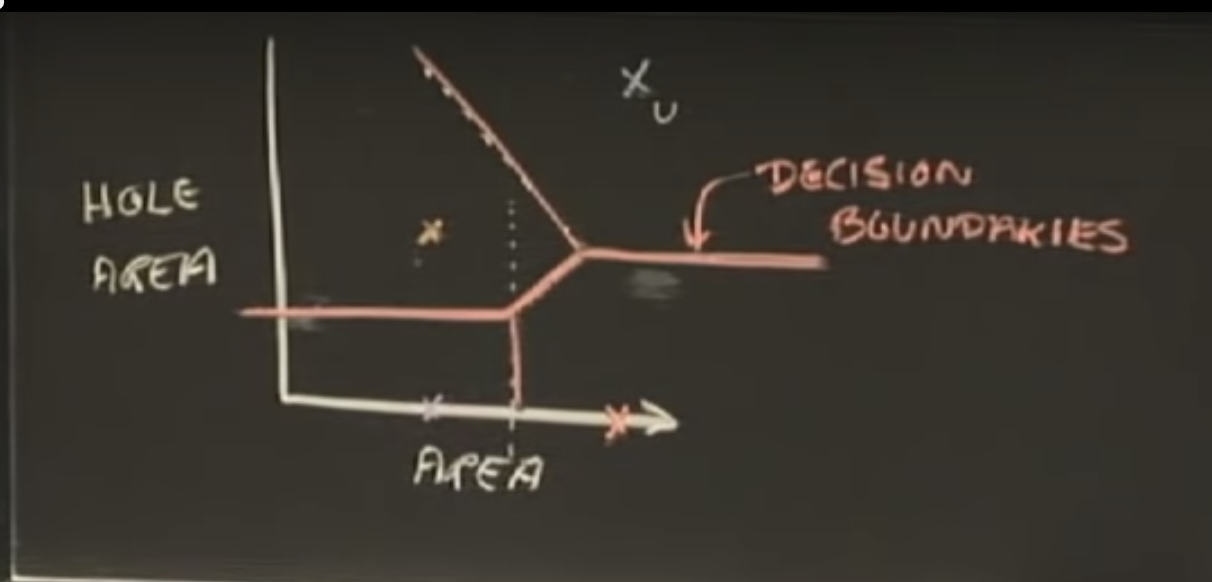 X U
HOLE
AREA
DECISION
BOUNDARIES
AREA